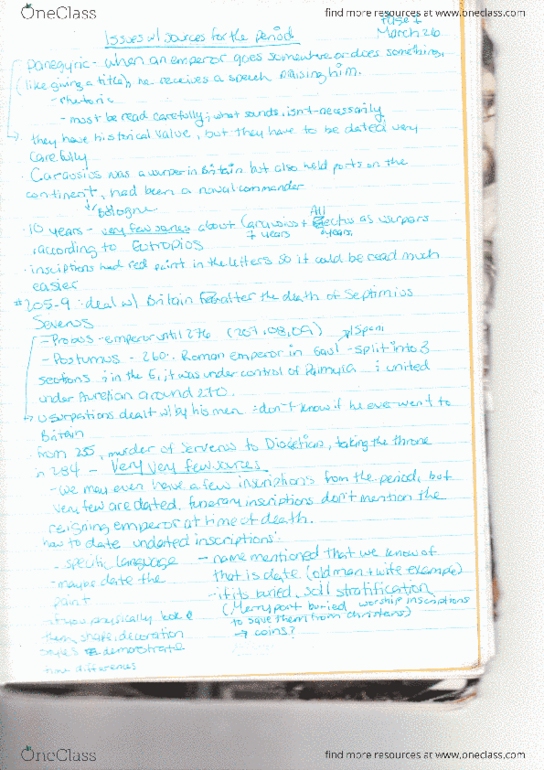 OneClass
find more resources at oneclass.com
March 26
Issues w/ sources for the period
panegyric - when an emperor goes somewhere or does something,
(like giving a title), he receives a speech praising him.
- rhetoric
- must be read carefully; what sounds, isn't necessarily
they have historical value, but they have to be dated very
carefully
· Carausius was a usurper in Britain but also held ports on the
continent, had been a naval commander
Bologne
· 10 years - very few sources about Carausius + Allectus as usurpers
7 years
according to Eutropios
· inscriptions had red paint in the letters so it could be read much
easier
#205-9: deal w/ Britain after the death of Septimius
Severus
- Probus - emperor until 276 (207, 08, 09)
Spain
- Postumus - 260: Roman emperor in Gaul - split into 3
sections; in the E, it was under control of Palmyra; united
under Aurelian around 270.
usurpations dealt w/ by his men = don't know if he ever went to
Britain
from 255, murder of Serverus to Diocletian, taking the throne
in 284 - very very few sources
- we may even have a few inscriptions from the period, but
very few are dated. funerary inscriptions don't mention the
reigning emperor at time of death.
how to date undated inscriptions:
- specific language
- maybe date the
paint
if you physically look @
them, shape, decoration
styles demonstrate
time difference
- name mentioned that we know of
that is date (old man + wife example)
- if its buried, soil stratification
(Merryport buried worship inscriptions
to save them from christens)
→ coins?
OneClass
find more resources at oneclass.com